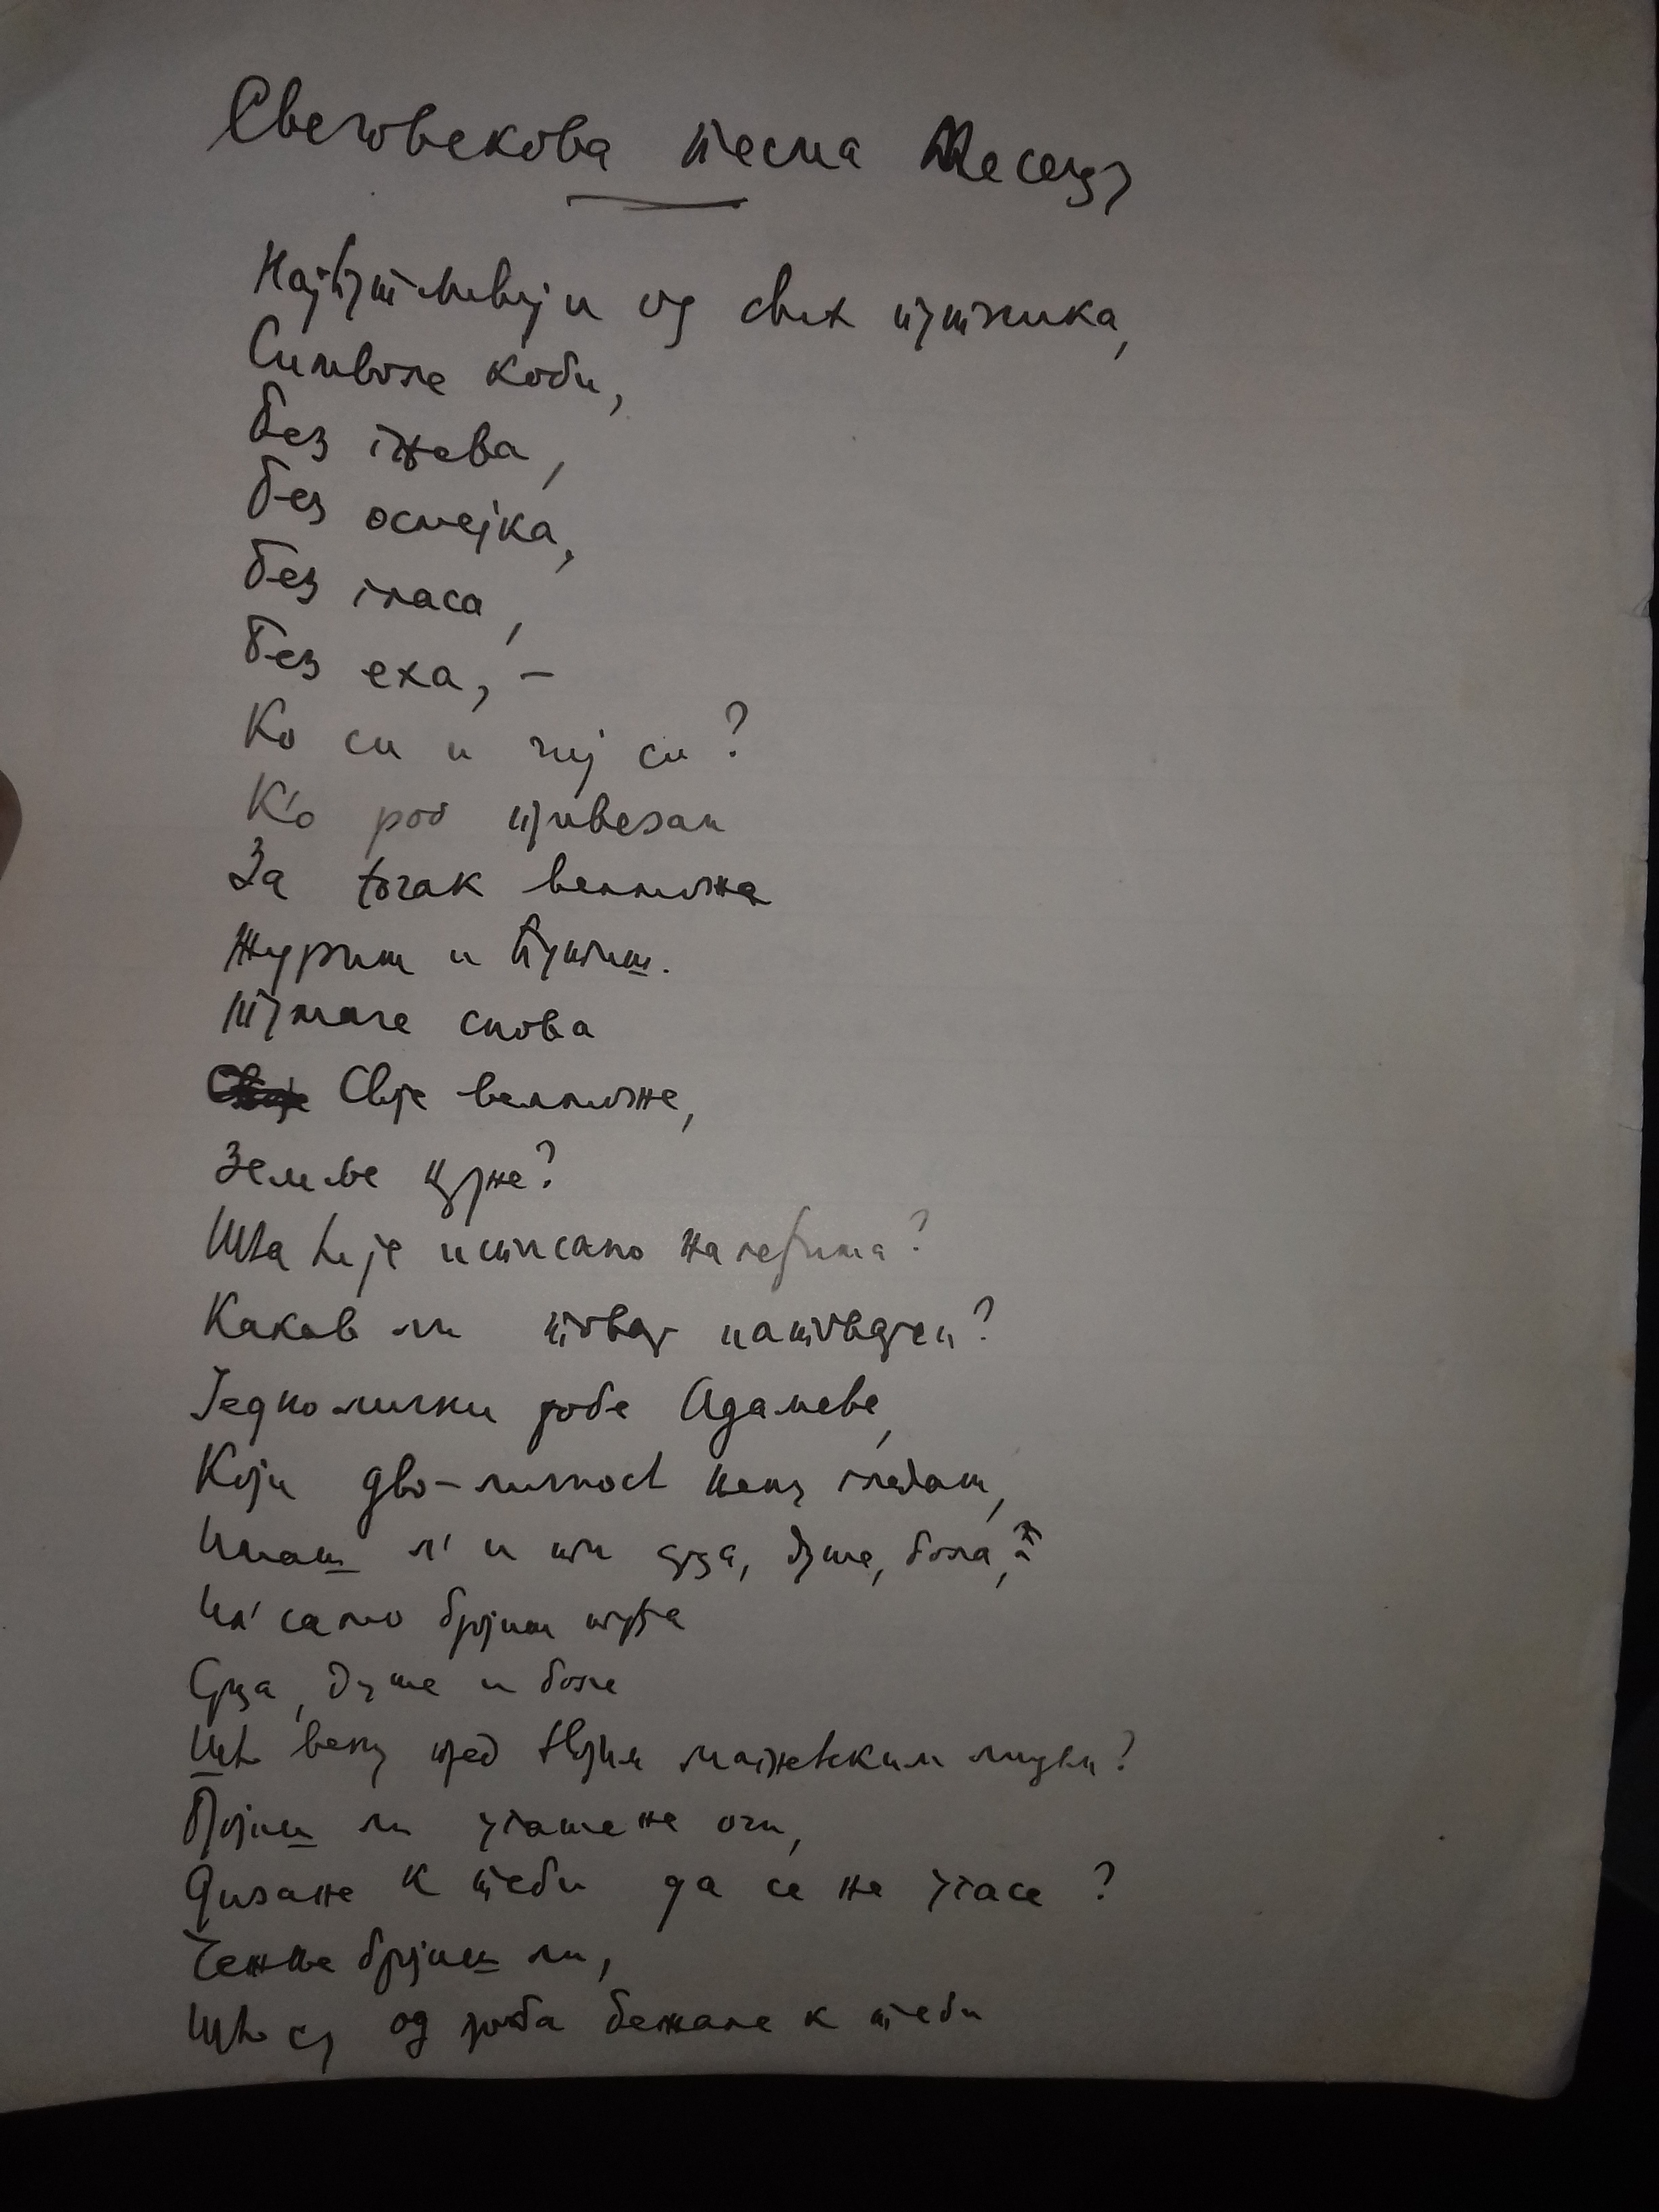 Свечовекова песма Месецу
Најћутљивији од свих путника,
Симвole коби,
Без гнева,
Без осмејка,
Без гласа,
Без еха, –
Ко си и чиј си?
К'о роб привезан
За točak велможа
Журиш и путиш.
Тумаче снова
Своје велможе,
Земље црне?
Шta ti је исписано на леђима?
Какав ли товар натоварен?
Једнолични робе Адамеве,
Који дво-личност нашу гледаш,
Имаш л' и ти срца, душе, бола,
Ил' само бројиш туђа
Срца, душе и боле
Што вену пред твојим мађијским лицем?
Бројиш ли угашене очи,
Дизане к теби да се не угасе?
Чежње бројиш ли,
Што су од гроба бежале к теби